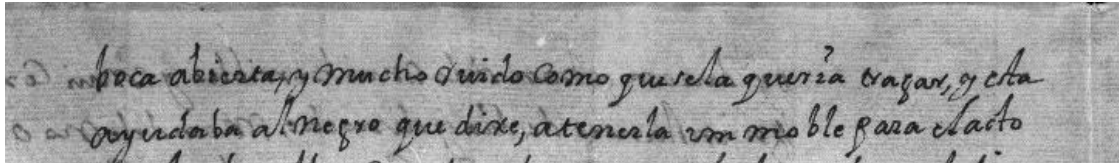 boca abierta, y mucho ruido como que se la queria tragar, y esta
ayudaba al negro que dixe, a tenerla immoble para el acto